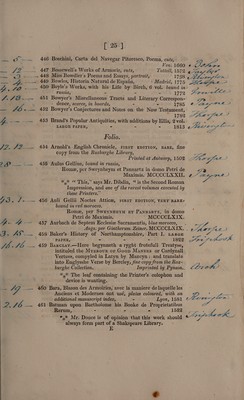 [ 25 ]
446 Boschini, Carta del Navegar Pitoresco, Poema, cuts.
Ven. 1660
447 Bossewell's Works of Armorie, cuts, Tottell, 1572
448 Miss Bowdler's Poems and Essays, portrait, 1798
449 Bowles, Historia Natural de España, Madrid, 1775
450 Boyle's Works, with his Life by Birch, 6 vol. bound in
russia, 1772
451 Bowyer's Miscellaneous Tracts and Literary Correspondence, scarce, in boards, 1785
452 Bowyer's Conjectures and Notes on the New Testament,
1782
453 Brand's Popular Antiquities, with additions by Ellis, 2 vol.
LARGE PAPER, 1813
Folio.
454 Arnold's English Chronicle, FIRST EDITION, RARE, fine
copy from the Roxburghe Library,
Printed at Antwerp, 1502
455 Aulus Gellius, bound in russia,
ROMÆ, per Sweynheym et Pannartz in domo Petri de
Maximis. MCCCCLXXII.
*** "This," says Mr. Dibdin, "is the Second Roman
Impression, and one of the rarest volumes executed by
these Printers."
456 Auli Gellii Noctes Atticæ, FIRST EDITION, VERY RARE,
bound in red morocco,
ROMÆ, PER SWEYNHEYM ET PANNARTZ, in domo
Petri de Maximis. MCCCCLXIX.
457 Aurbach de Septem Ecclesiæ Sacramentis, blue morocco,
Augs. per Gintherum Zainer. MCCCCLXIX.
458 Baker's History of Northamptonshire, Part I. LARGE
PAPER, 1822
459 BARCLAY—Here begynneth a ryght frutefull Treatyse,
intituled the MYRROUR OF GOOD MANERS or Cardynall
Vertues, compyled in Latyn by Mancyn: and translate
into Englysshe Verse by Barcley, fine copy from the Roxburghe Collection. Imprinted by Pynson.
*** The leaf containing the Printer's colophon and
device is wanting.
460 Bara, Blason des Armoiries, avec la manière de laquelle les
Anciens et Modernes ont usé, plates coloured, with an
additional manuscript index, Lyon, 1581
461 Batman upon Bartholome his Booke de Proprietatibus
Rerum, 1582
*** Mr. Douce is of opinion that this work should
always form part of a Shakspeare Library.
E